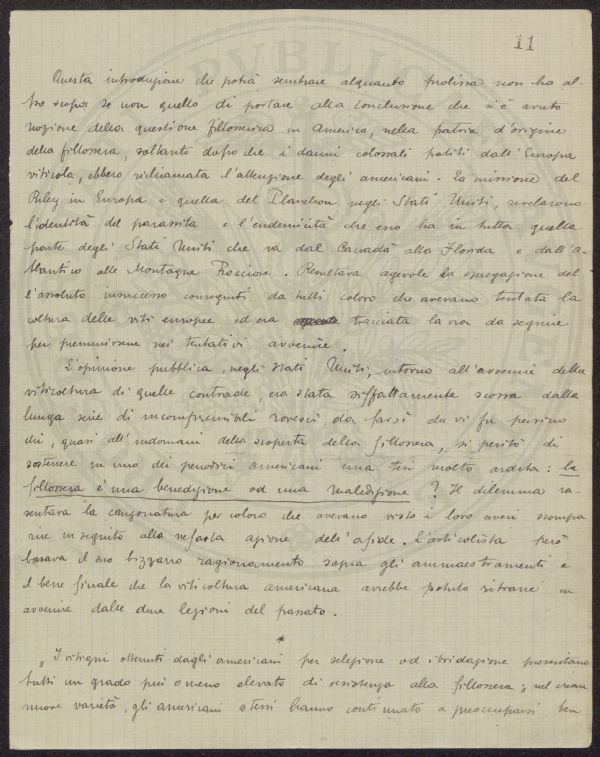 11
Questa introduzione che potrà sembrare alquanto prolissa non ha al-
tro scopo se non quello di portare alla conclusione che si è avuto
nozione della questione fillosserica in America, nella patria d'origine
della fillossera, soltanto dopo che i danni colossali patiti dall'Europa
viticola, ebbero richiamata l'attenzione degli americani. La missione del
Riley in Europa e quella del Planchon negli Stati Uniti, rivelarono
l'identità del parassita e l'endemicità che esso ha in tutta quella
parte degli Stati Uniti che va dal Canadà alla Florida e dall'A-
tlantico alle Montagne Rocciose. Risultava agevole la spiegazione del-
l'assoluto insuccesso conseguito da tutti coloro che avevano tentata la
coltura delle viti europee ed era tracciata la via da seguire
per premunirsene nei tentativi avvenire.
L'opinione pubblica, negli Stati Uniti, intorno all'avvenire della
viticoltura di quelle contrade, era stata siffattamente scossa dalla
lunga serie di incomprensibili rovesci, da farsi che vi fu persino
chi, quasi all'indomani della scoperta della fillossera, si peritò di
sostenere in uno dei periodici americani una tesi molto ardita: la
fillossera è una benedizione od una maledizione? Il dilemma ra-
sentava la canzonatura per coloro che avevano visto i loro averi scompa
rire in seguito alla nefasta azione dell'afide. L'articolista però
basava il suo bizzarro ragionamento sopra gli ammaestramenti e
il bene finale che la viticoltura americana avrebbe potuto ritrarre in
avvenire dalle dure lezioni del passato.
*
I vitigni ottenuti dagli americani per selezione od ibridazione presentano
tutti un grado più o meno elevato di resistenza alla fillossera; nel crear
nuove varietà, gli americani stessi hanno continuato a preoccuparsi ben